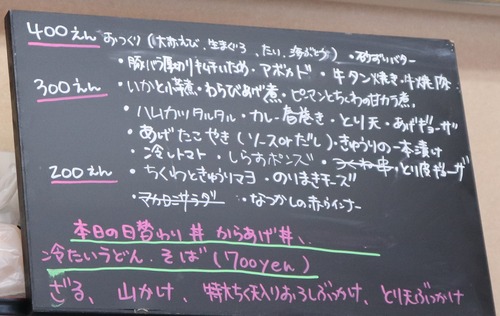 400えん おつくり(はたえび、生まぐろ、たい、海ぶどう)・砂ずりバター
・豚バラ厚切りキムチいため・アボカド・牛タン焼き・牛焼肉
300えん ・いかと小芋煮・わらびあげ煮・ピーマンとちくわの甘カラ煮
・ハムカツタルタル・カレー春巻き・とり天・あげギョーザ
・あげたこやき(ソースorだし)・きゅうりの一本漬け
・冷しトマト・しらすポンズ・つくね串・とり皮ギョーザ
200えん ・ちくわときゅうりマヨ・のりまきチーズ
・マカロニサラダ・なつかしの赤ウインナー
本日の日替わり丼 からあげ丼、
冷たいうどん、そば(700yen)
ざる、山かけ、特大ちく天入りおろしぶっかけ、とり天ぶっかけ